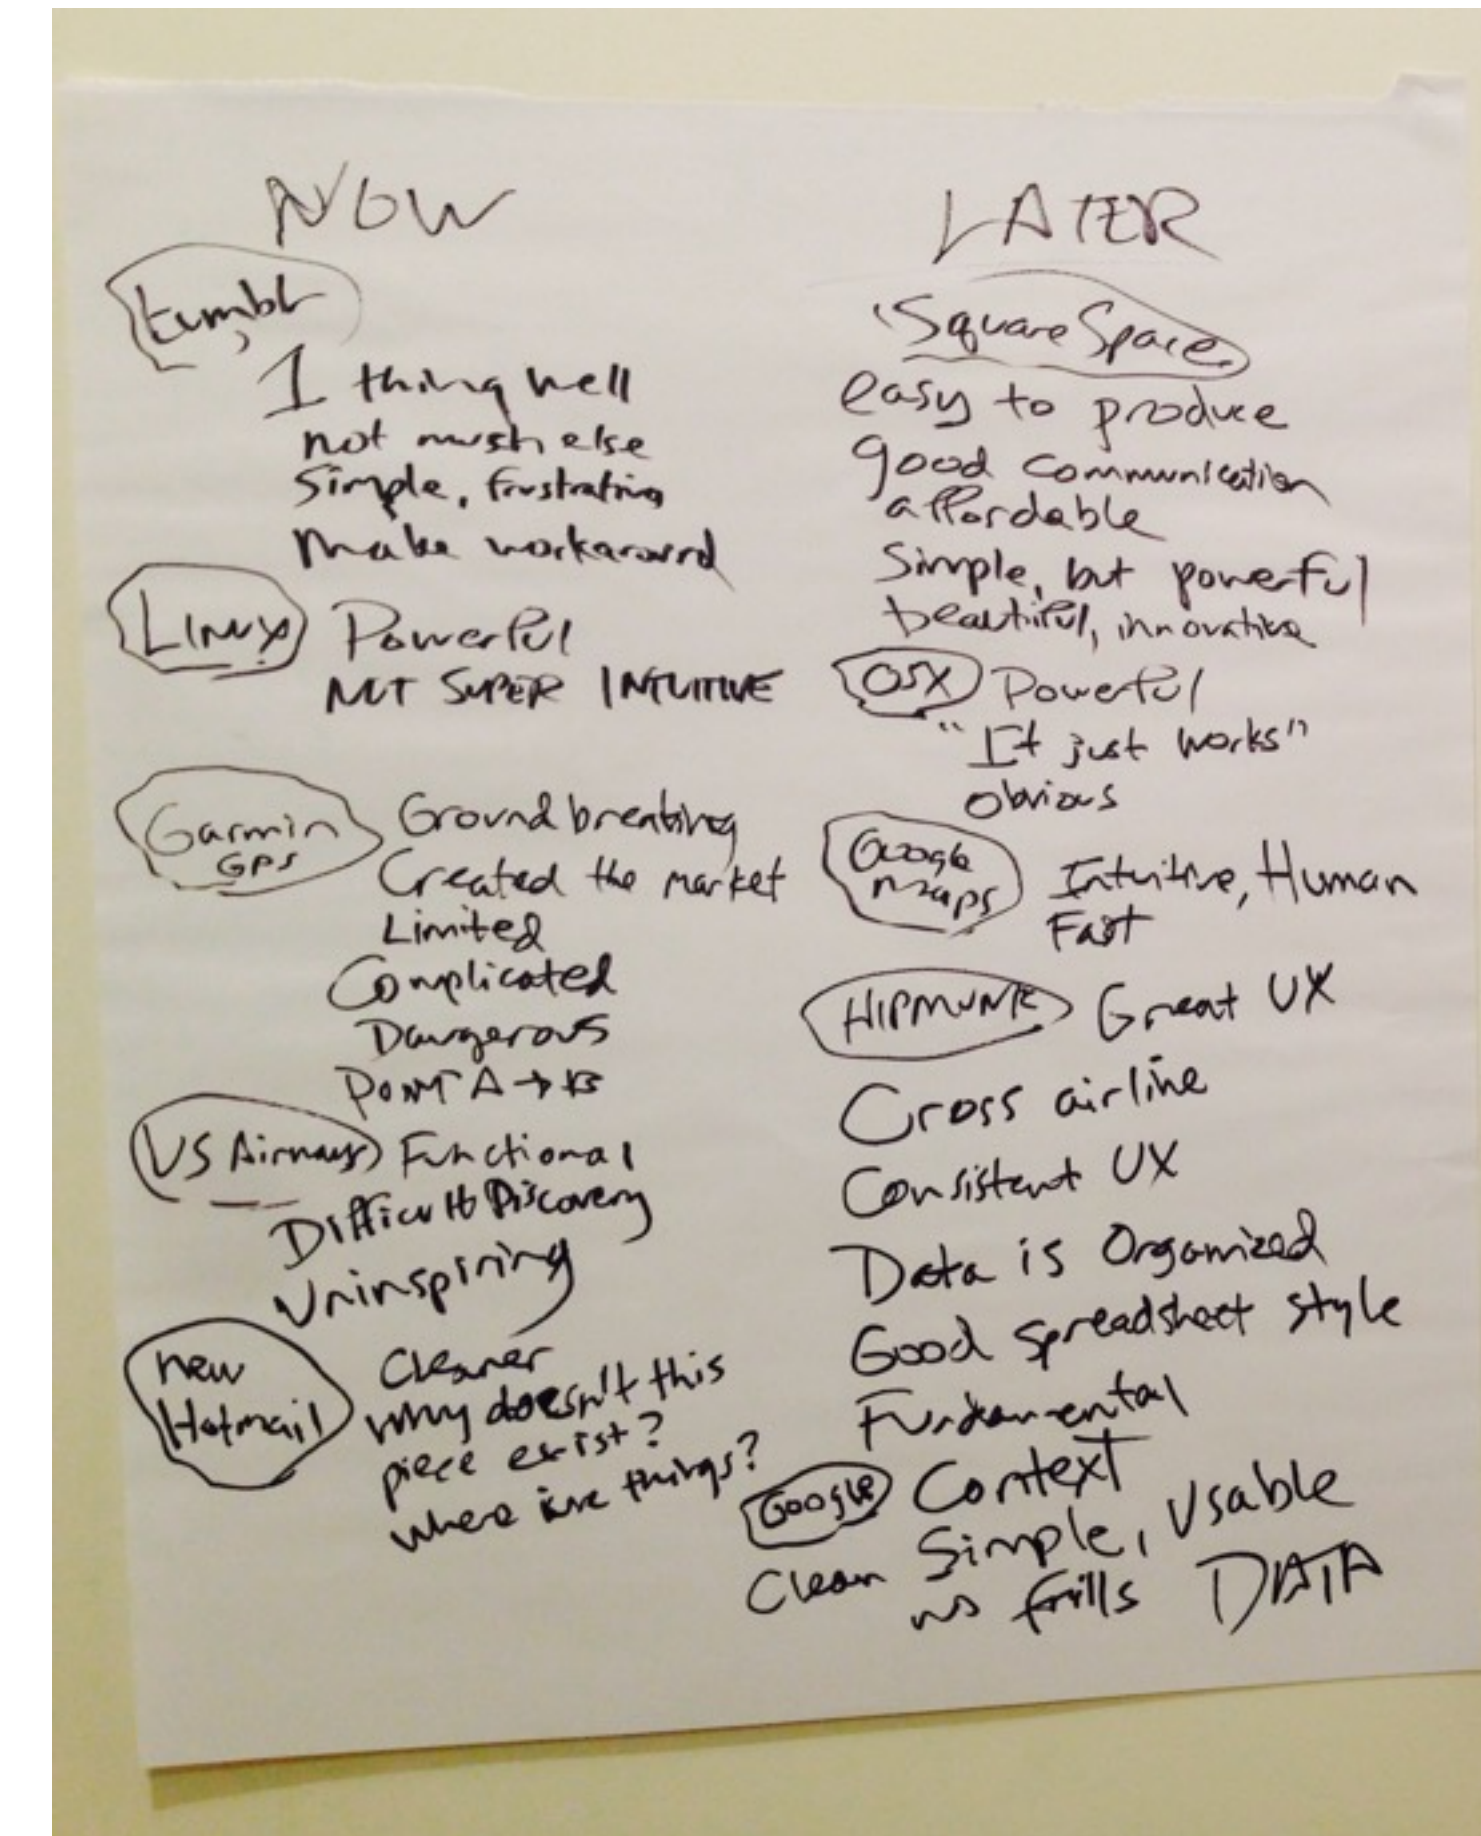 NOW
tumblr
1 thing well
not much else
Simple, frustrating
Make workaround
LINUX Powerful
NOT SUPER INTUITIVE
Garmin GPS
Groundbreaking
Created the market
Limited
Complicated
Dangerous
POINT A → B
US Airways Functional
Difficult Discovery
Uninspiring
new Hotmail
Cleaner
Why doesn't this
piece exist?
where are things?
LATER
SquareSpace
easy to produce
good communication
affordable
Simple, but powerful
beautiful, innovative
OSX Powerful
"It just works"
obvious
Google maps
Intuitive, Human
Fast
HIPMUNK Great UX
Cross airline
Consistent UX
Data is Organized
Good spreadsheet style
Fundamental
Google Context
Clean Simple, Usable
no frills DATA